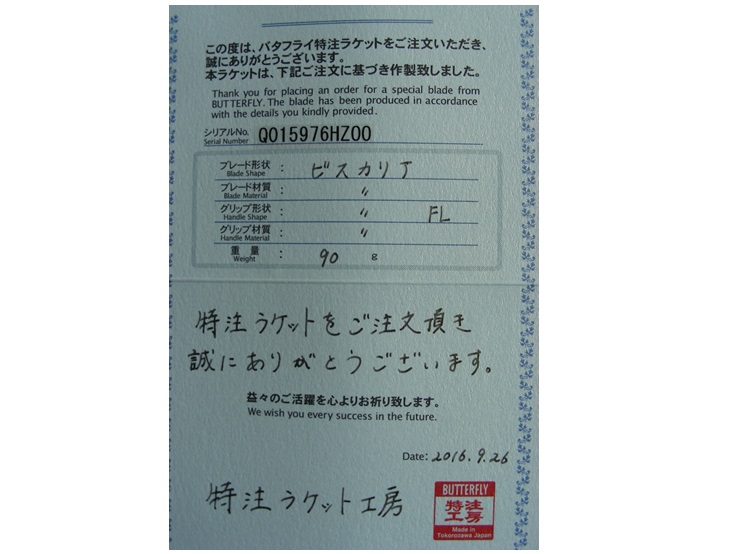 この度は、バタフライ特注ラケットをご注文いただき、
誠にありがとうございます。
本ラケットは、下記ご注文に基づき作製致しました。
Thank you for placing an order for a special blade from
BUTTERFLY. The blade has been produced in accordance
with the details you kindly provided.
シリアルNo.
Serial Number
Q015976HZ00
ブレード形状 : ビスカリア
Blade Shape
ブレード材質 : 〃
Blade Material
グリップ形状 : 〃 FL
Handle Shape
グリップ材質 : 〃
Handle Material
重量 : 90 g
Weight
特注ラケットをご注文頂き
誠にありがとうございます。
益々のご活躍を心よりお祈り致します。
We wish you every success in the future.
Date: 2016.9.26
特注ラケット工房
BUTTERFLY
特注
工房
Made in
Tokorozawa Japan